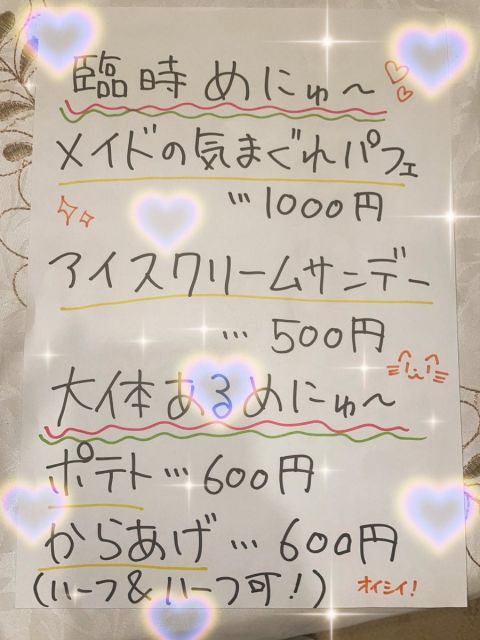 臨時めにゅ〜
メイドの気まぐれパフェ
…1000円
アイスクリームサンデー
…500円
大体あるめにゅ〜
ポテト…600円
からあげ…600円
(ハーフ&ハーフ可!)
オイシイ!